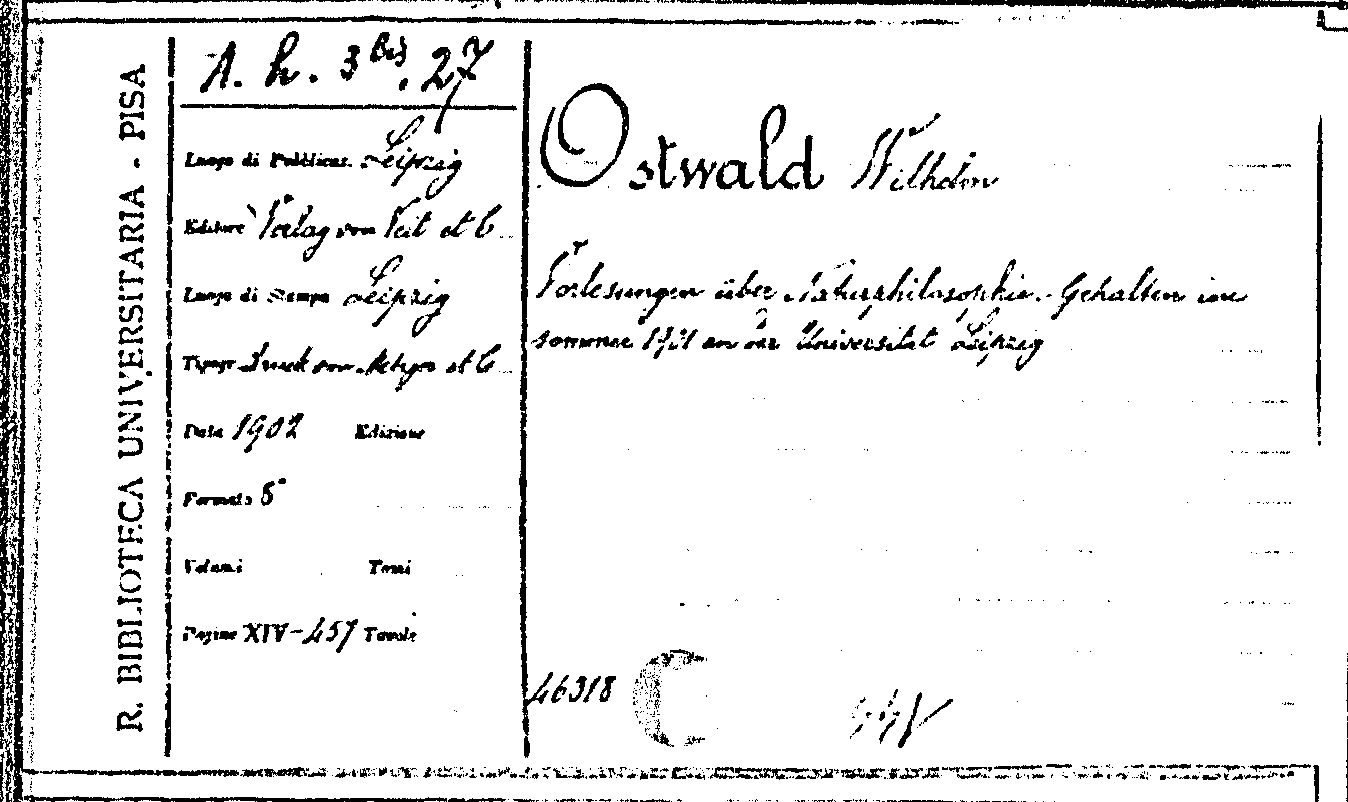 R. BIBLIOTECA UNIVERSITARIA - PISA
A. h. 3 bis. 27
Luogo di Pubblicaz. Leipzig
Editore Verlag von Veit et C
Luogo di Stampa Leipzig
Tipogr. Druck von Metzger et C
Data 1902 Edizione
Formato 8°
Volumi Tomi
Pagine XIV-457 Tavole
Ostwald Wilhelm
Vorlesungen über Naturphilosophie. Gehalten im
sommer 1901 an der Universität Leipzig
46318